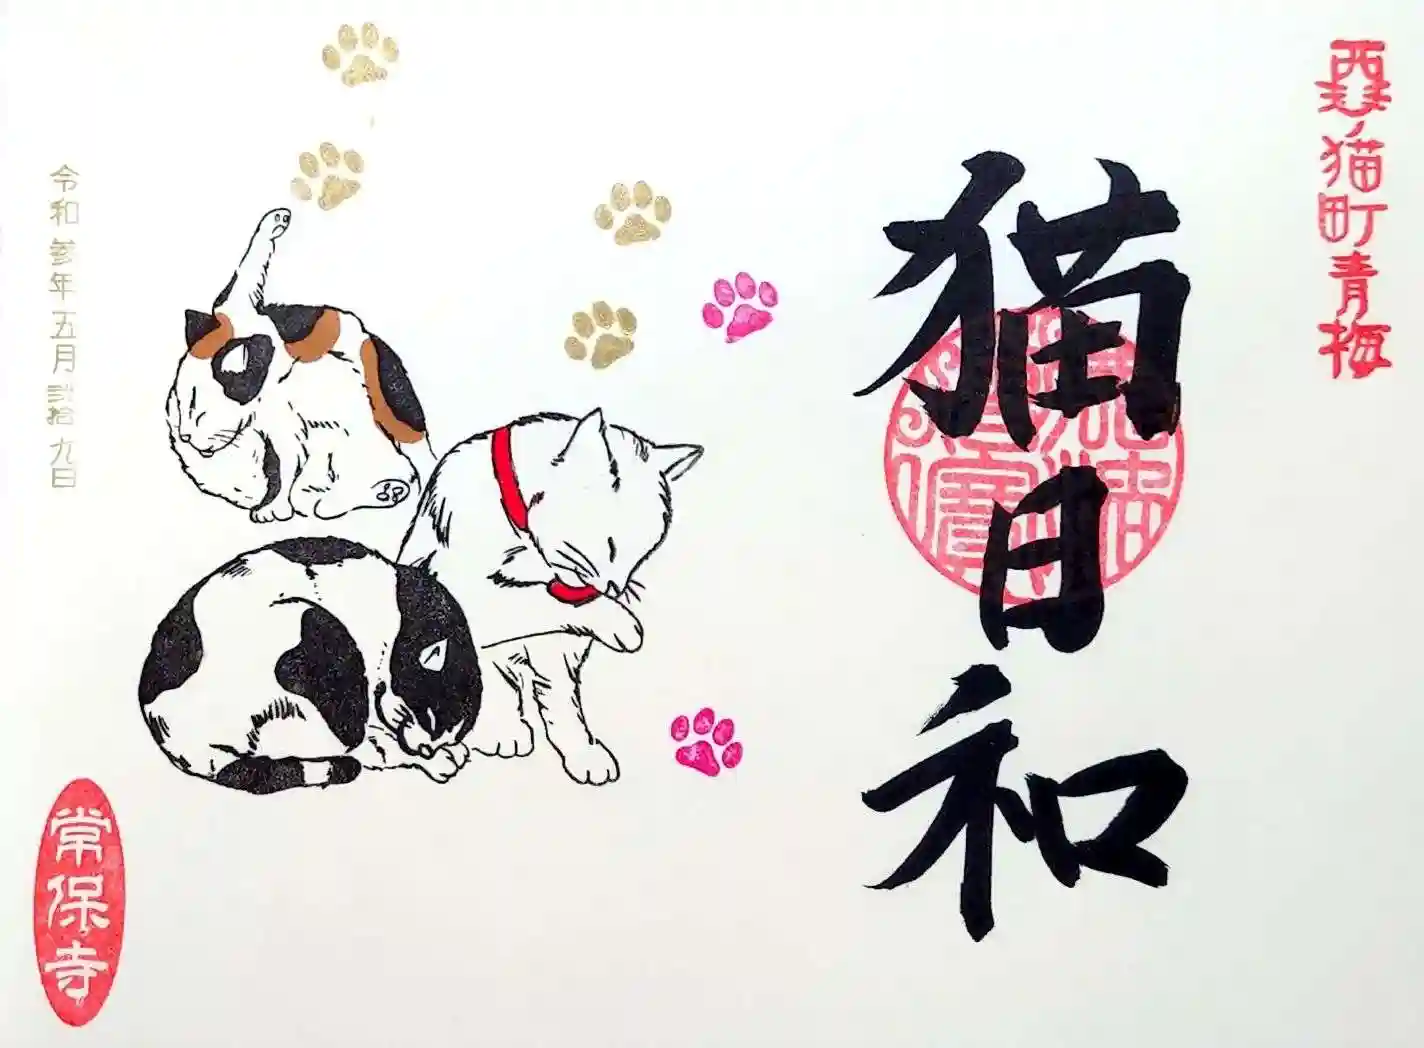 猫町青梅
猫日和
令和参年五月弐拾九日
常保寺